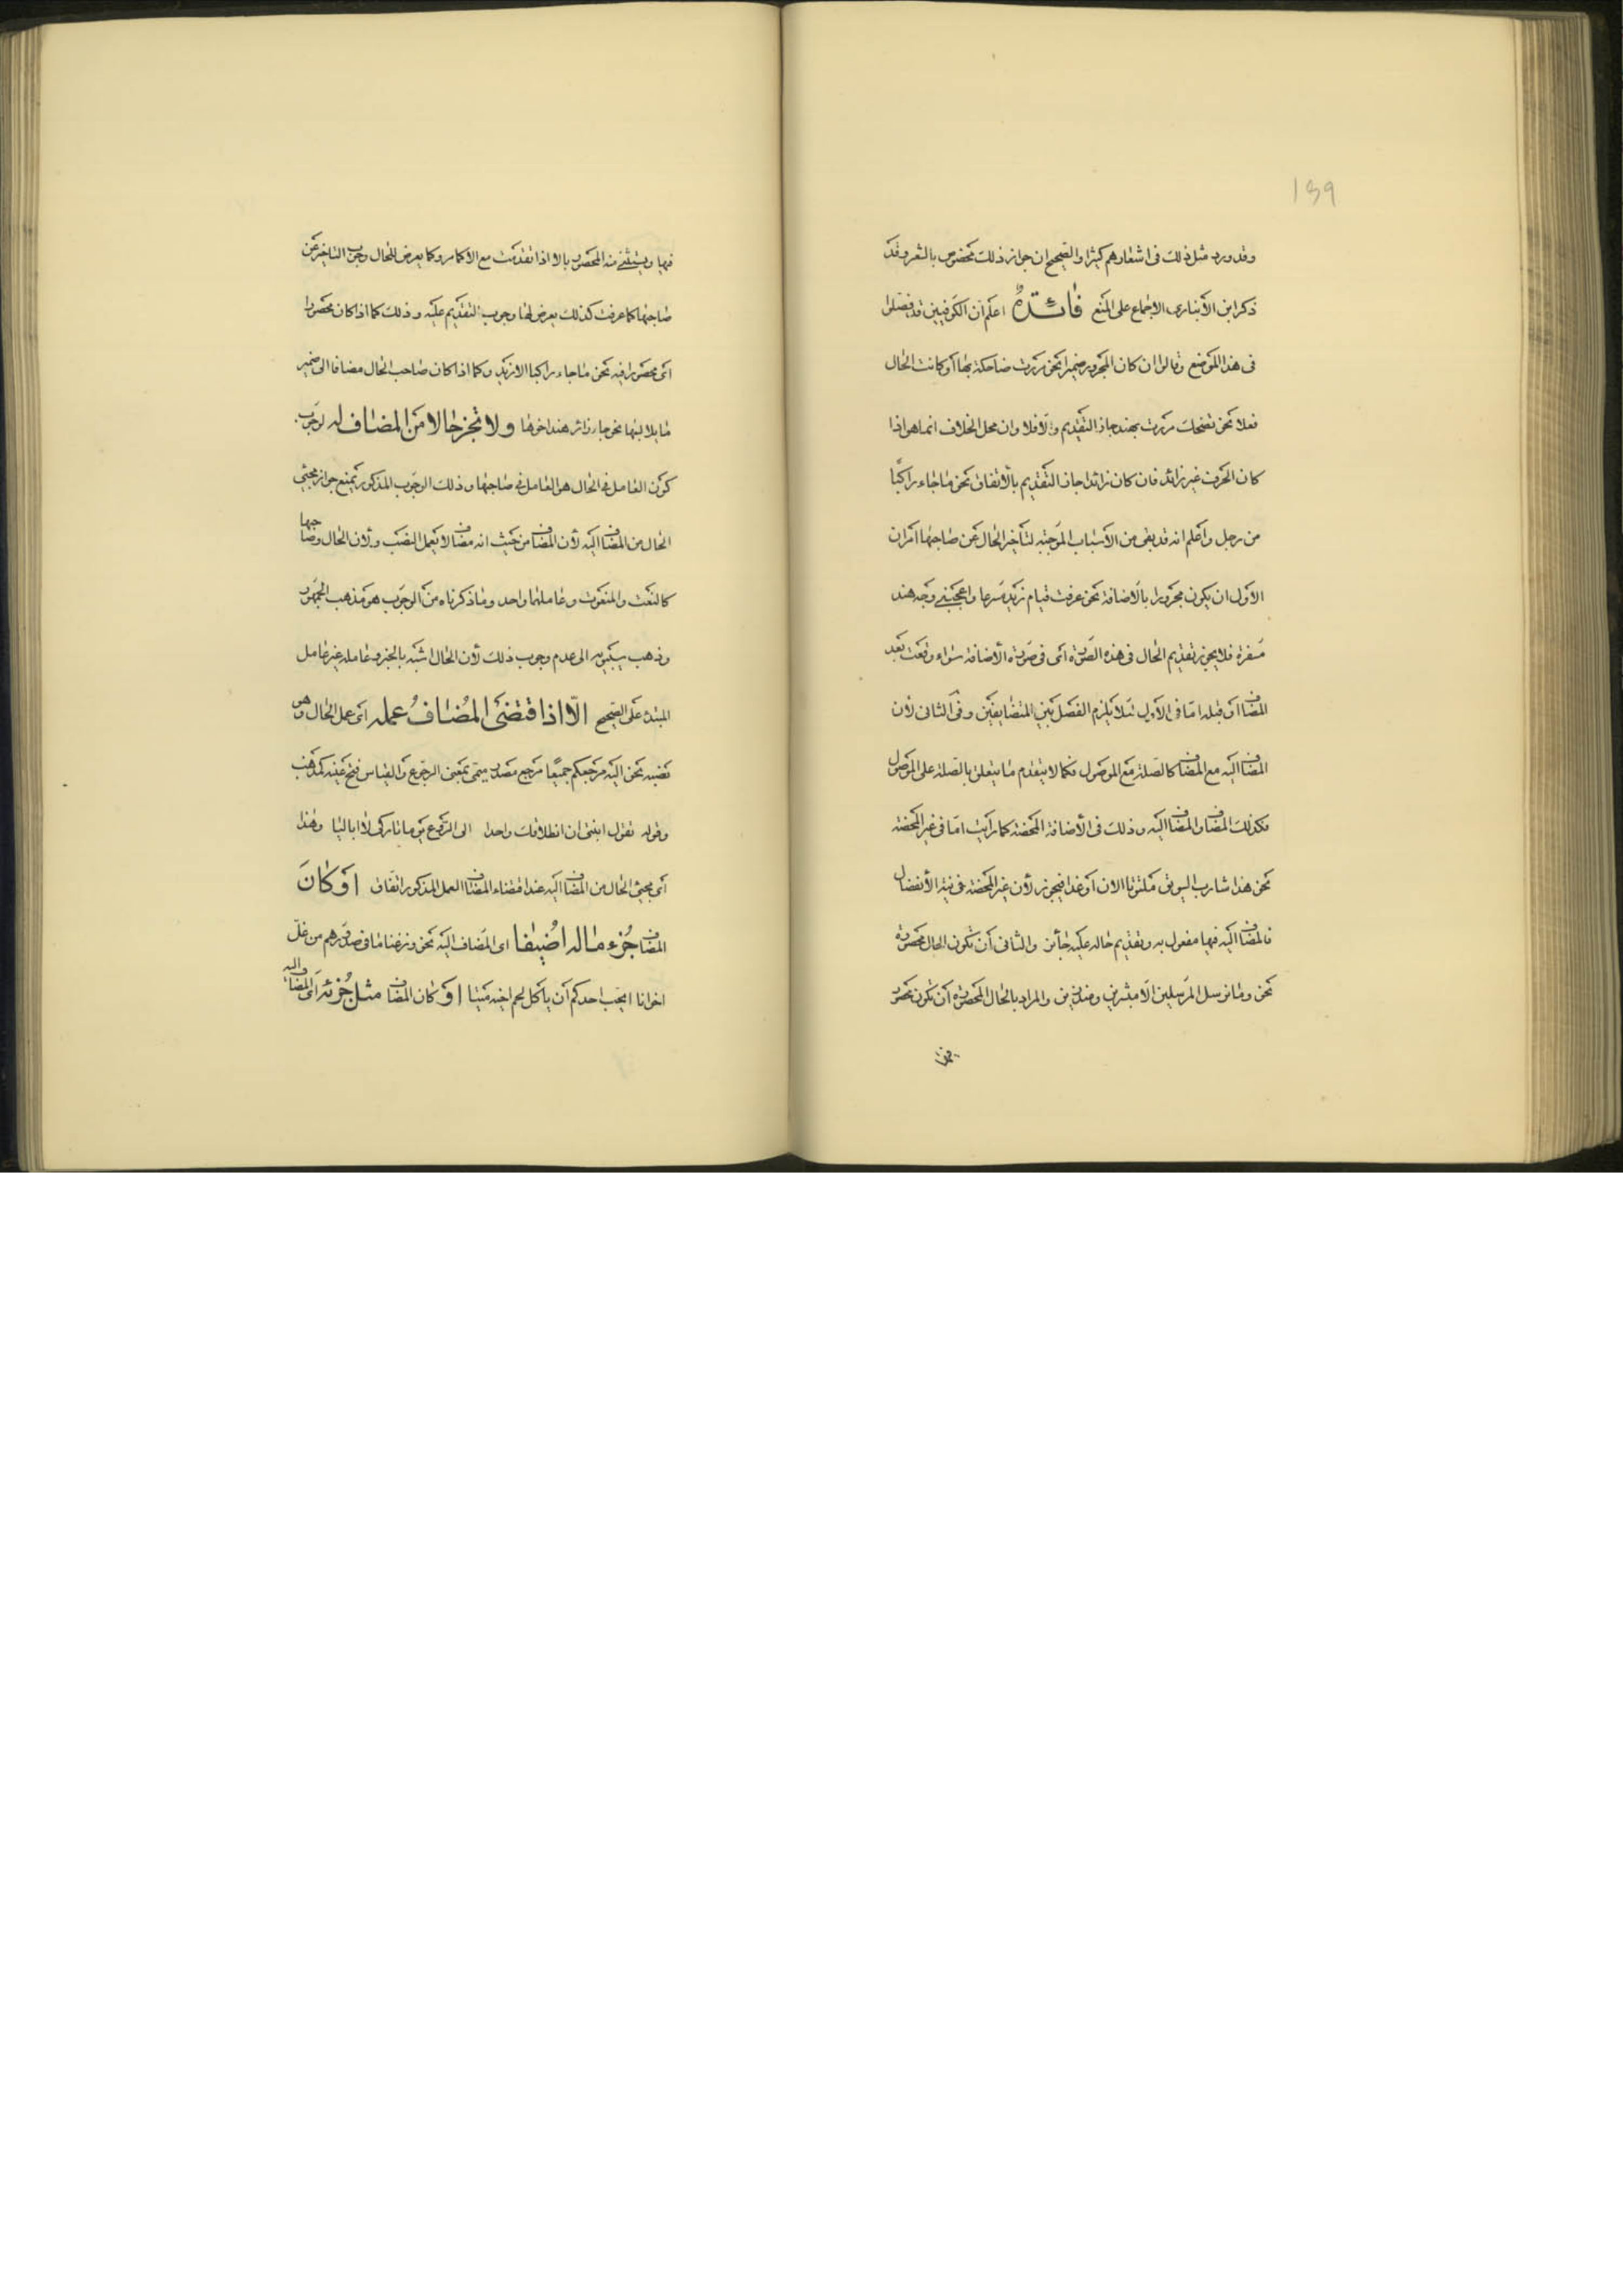 139
وقد ورد مثل ذلك فى اشعارهم كثيرا والصحيح ان جواز ذلك مخصوص بالشعر وقد
ذكر ابن الأنبارى الاجماع على المنع فائدة اعلم ان الكوفيين قد فصلوا
فى هذا الموضع وقالوا ان كان المجرور ضميرا نحو مررت ضاحكة بها او كانت الحال
فعلا نحو تضحك مررت بهند جاز التقديم والا فلا وان محل الخلاف انما هو اذا
كان الحرف غير زائد فان كان زائدا جاز التقديم بالاتفاق نحو ما جاء راكبا
من رجل واعلم انه قد بقى من الأسباب الموجبة لتأخير الحال عن صاحبها امران
الاول ان يكون مجرورا بالاضافة نحو عرفت قيام زيد مسرعا واعجبنى وجه هند
مسفرة فلا يجوز تقديم الحال فى هذه الصورة اى فى صورة الأضافة سواء وقعت بعد
المضاف او قبله اما فى الأول لئلا يلزم الفصل بين المتضايفين وفى الثانى لأن
المضاف اليه مع المضاف كالصلة مع الموصول فكما لا يتقدم ما يتعلق بالصلة على الموصول
فكذلك المضاف والمضاف اليه وذلك فى الأضافة المحضة كما رأيت اما فى غير المحضة
نحو هذا شارب السويق ملتوتا الان او غدا فيجوز لأن غير المحضة فى نية الأنفصال
فالمضاف اليه فيها مفعول به وتقديم حاله عليه جائز والثانى أن تكون الحال محصورة
نحو وما نرسل المرسلين الا مبشرين ومنذرين والمراد بالحال المحصورة أن تكون محصور
فيها
فيها ويستثنى منه المحصور بالا اذا تقدمت مع الا كما مر وكما يعرض للحال وجوب التاخير عن
صاحبها كما عرفت كذلك يعرض لها وجوب التقديم عليه وذلك كما اذا كان محصورا
اى محصورا فيه نحو ما جاء راكبا الا زيد وكما اذا كان صاحب الحال مضافا الى ضمير
ما يلابسها نحو جاء زائر هند اخوها ولا تجز حالا من المضاف له لوجوب
كون العامل فى الحال هو العامل فى صاحبها وذلك الوجوب المذكور يمنع جواز مجئ
الحال من المضاف اليه لأن المضاف من حيث انه مضاف لا يعمل النصب ولأن الحال وصاحبها
كالنعت والمنعوت وعاملهما واحد وما ذكرناه من الوجوب هو مذهب الجمهور
وذهب سيبويه الى عدم وجوب ذلك لأن الحال اشبه بالخبر وعامله غير عامل
المبتدء على الصحيح الا اذا اقتضى المضاف عمله اى عمل الحال وهو
نصبه نحو اليه مرجعكم جميعا مرجع مصدر ميمى بمعنى الرجوع والقياس فتح عينه كمذهب
وقوله تقول ابنتى ان انطلاقك واحدا الى الروع يوما تاركى لا ابا ليا وهذا
اى مجئ الحال من المضاف اليه عند اقتضاء المضاف العمل المذكور اتفاق او كان
المضاف جزء ماله اضيفا اى المضاف اليه نحو ونزعنا ما فى صدورهم من غل
اخوانا ايحب احدكم أن يأكل لحم اخيه ميتا او كان المضاف مثل جزئه اى المضاف اليه